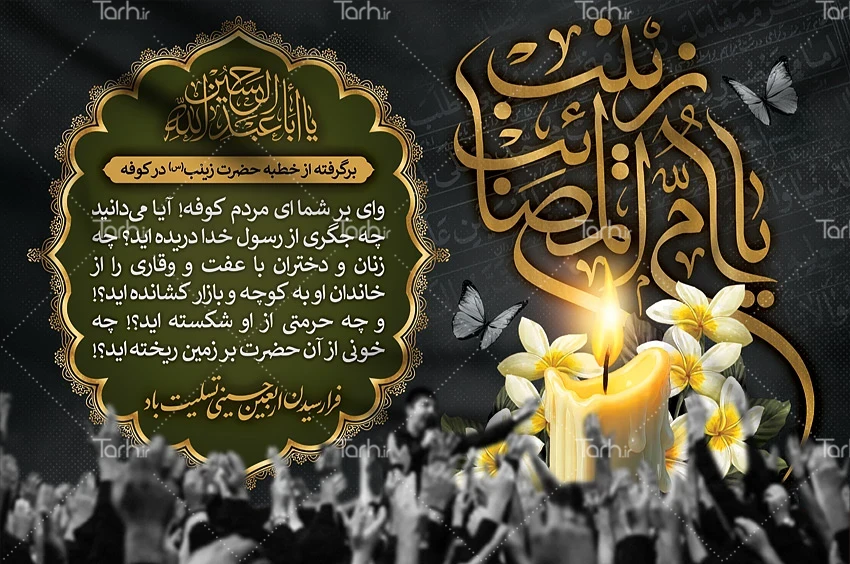 یا أم المصائب زینب
یا أبا عبدالله الحسین
برگرفته از خطبه حضرت زینب(س) در کوفه
وای بر شما ای مردم کوفه! آیا می‌دانید
چه جگری از رسول خدا دریده اید؟ چه
زنان و دختران با عفت و وقاری را از
خاندان او به کوچه و بازار کشانده اید؟!
و چه حرمتی از او شکسته اید؟! چه
خونی از آن حضرت بر زمین ریخته اید؟!
فرا رسیدن اربعین حسینی تسلیت باد
Tarh.ir